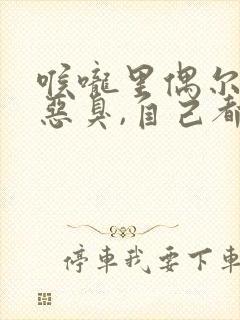 喉嚨里偶尔
惡臭,自己都
停車我要下車